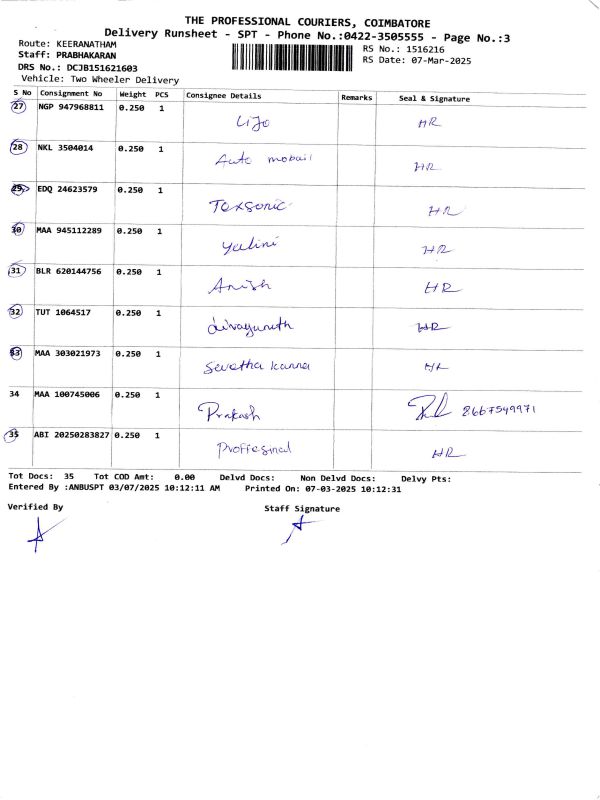 THE PROFESSIONAL COURIERS, COIMBATORE
Delivery Runsheet - SPT - Phone No.:0422-3505555 - Page No.:3
Route: KEERANATHAM
Staff: PRABHAKARAN
DRS No.: DCJB151621603
Vehicle: Two Wheeler Delivery
RS No.: 1516216
RS Date: 07-Mar-2025
S No Consignment No Weight PCS Consignee Details Remarks Seal & Signature
27 NGP 947968811 0.250 1 Lijo HR
28 NKL 3504014 0.250 1 Auto mobail HR
29 EDQ 24623579 0.250 1 Toxsonic HR
30 MAA 945112289 0.250 1 yalini HR
31 BLR 620144756 0.250 1 Anish HR
32 TUT 1064517 0.250 1 HR
33 MAA 303021973 0.250 1 HR
34 MAA 100745006 0.250 1 Prakash 8667549971
35 ABI 20250283827 0.250 1 Proffesinal HR
Tot Docs: 35 Tot COD Amt: 0.00 Delvd Docs: Non Delvd Docs: Delvy Pts:
Entered By :ANBUSPT 03/07/2025 10:12:11 AM Printed On: 07-03-2025 10:12:31
Verified By Staff Signature